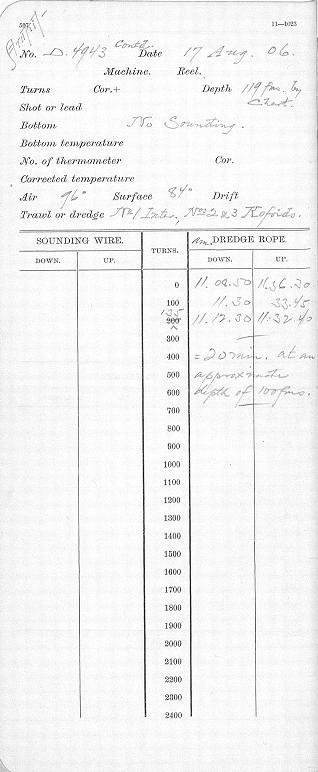 507 11—1023
No. D. 4943 Contd. Date 17 Aug. 06.
Machine. Reel.
Turns Cor.+ Depth 119 fms. by
Chart.
Shot or lead
Bottom No Sounding.
Bottom temperature
No. of thermometer Cor.
Corrected temperature
Air 96° Surface 84° Drift
Trawl or dredge No 1 Inter., Nos 2 & 3 Kofoids.
SOUNDING WIRE. TURNS. am. DREDGE ROPE.
DOWN. UP. DOWN. UP.
0 11.08.50 11.36.30
100 11.30 33.45
135
200 11.12.30 11.32.40
300
400 = 20 min. at an
500 approximate
600 depth of 100 fms.
700
800
900
1000
1100
1200
1300
1400
1500
1600
1700
1800
1900
2000
2100
2200
2300
2400